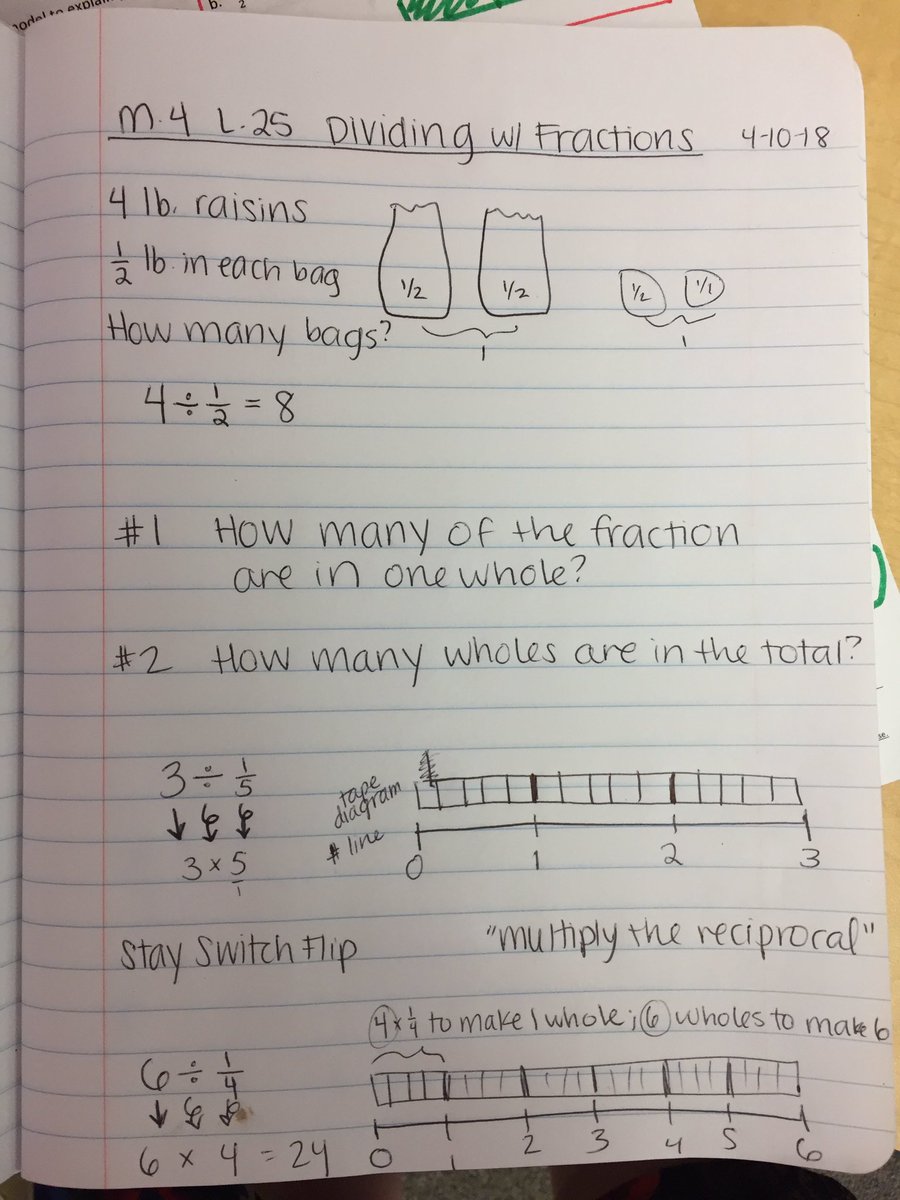 model to explain
b. 2
M.4 L.25 Dividing w/ Fractions 4-10-18
4 lb. raisins
1/2 lb. in each bag
1/2 1/2 1/2
How many bags?
1 1
4 ÷ 1/2 = 8
#1 How many of the fraction
are in one whole?
#2 How many wholes are in the total?
3 ÷ 1/5
tape
diagram
3 × 5/1
# line
0 1 2 3
Stay Switch Flip "multiply the reciprocal"
4 × 1/4 to make 1 whole; 6 wholes to make 6
6 ÷ 1/4
6 × 4 = 24
0 1 2 3 4 5 6